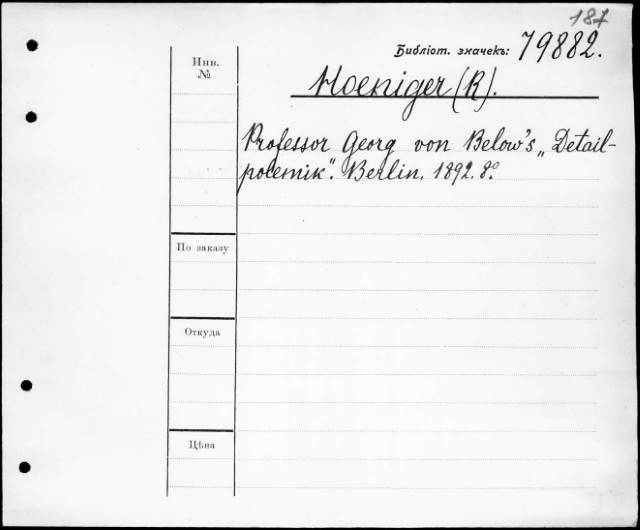 187
Библіот. значекъ: 79882.
Инв.
№
Hoeniger (R).
Professor Georg von Below's „Detail-
polemik“. Berlin. 1892. 8º.
По заказу
Откуда
Цѣна